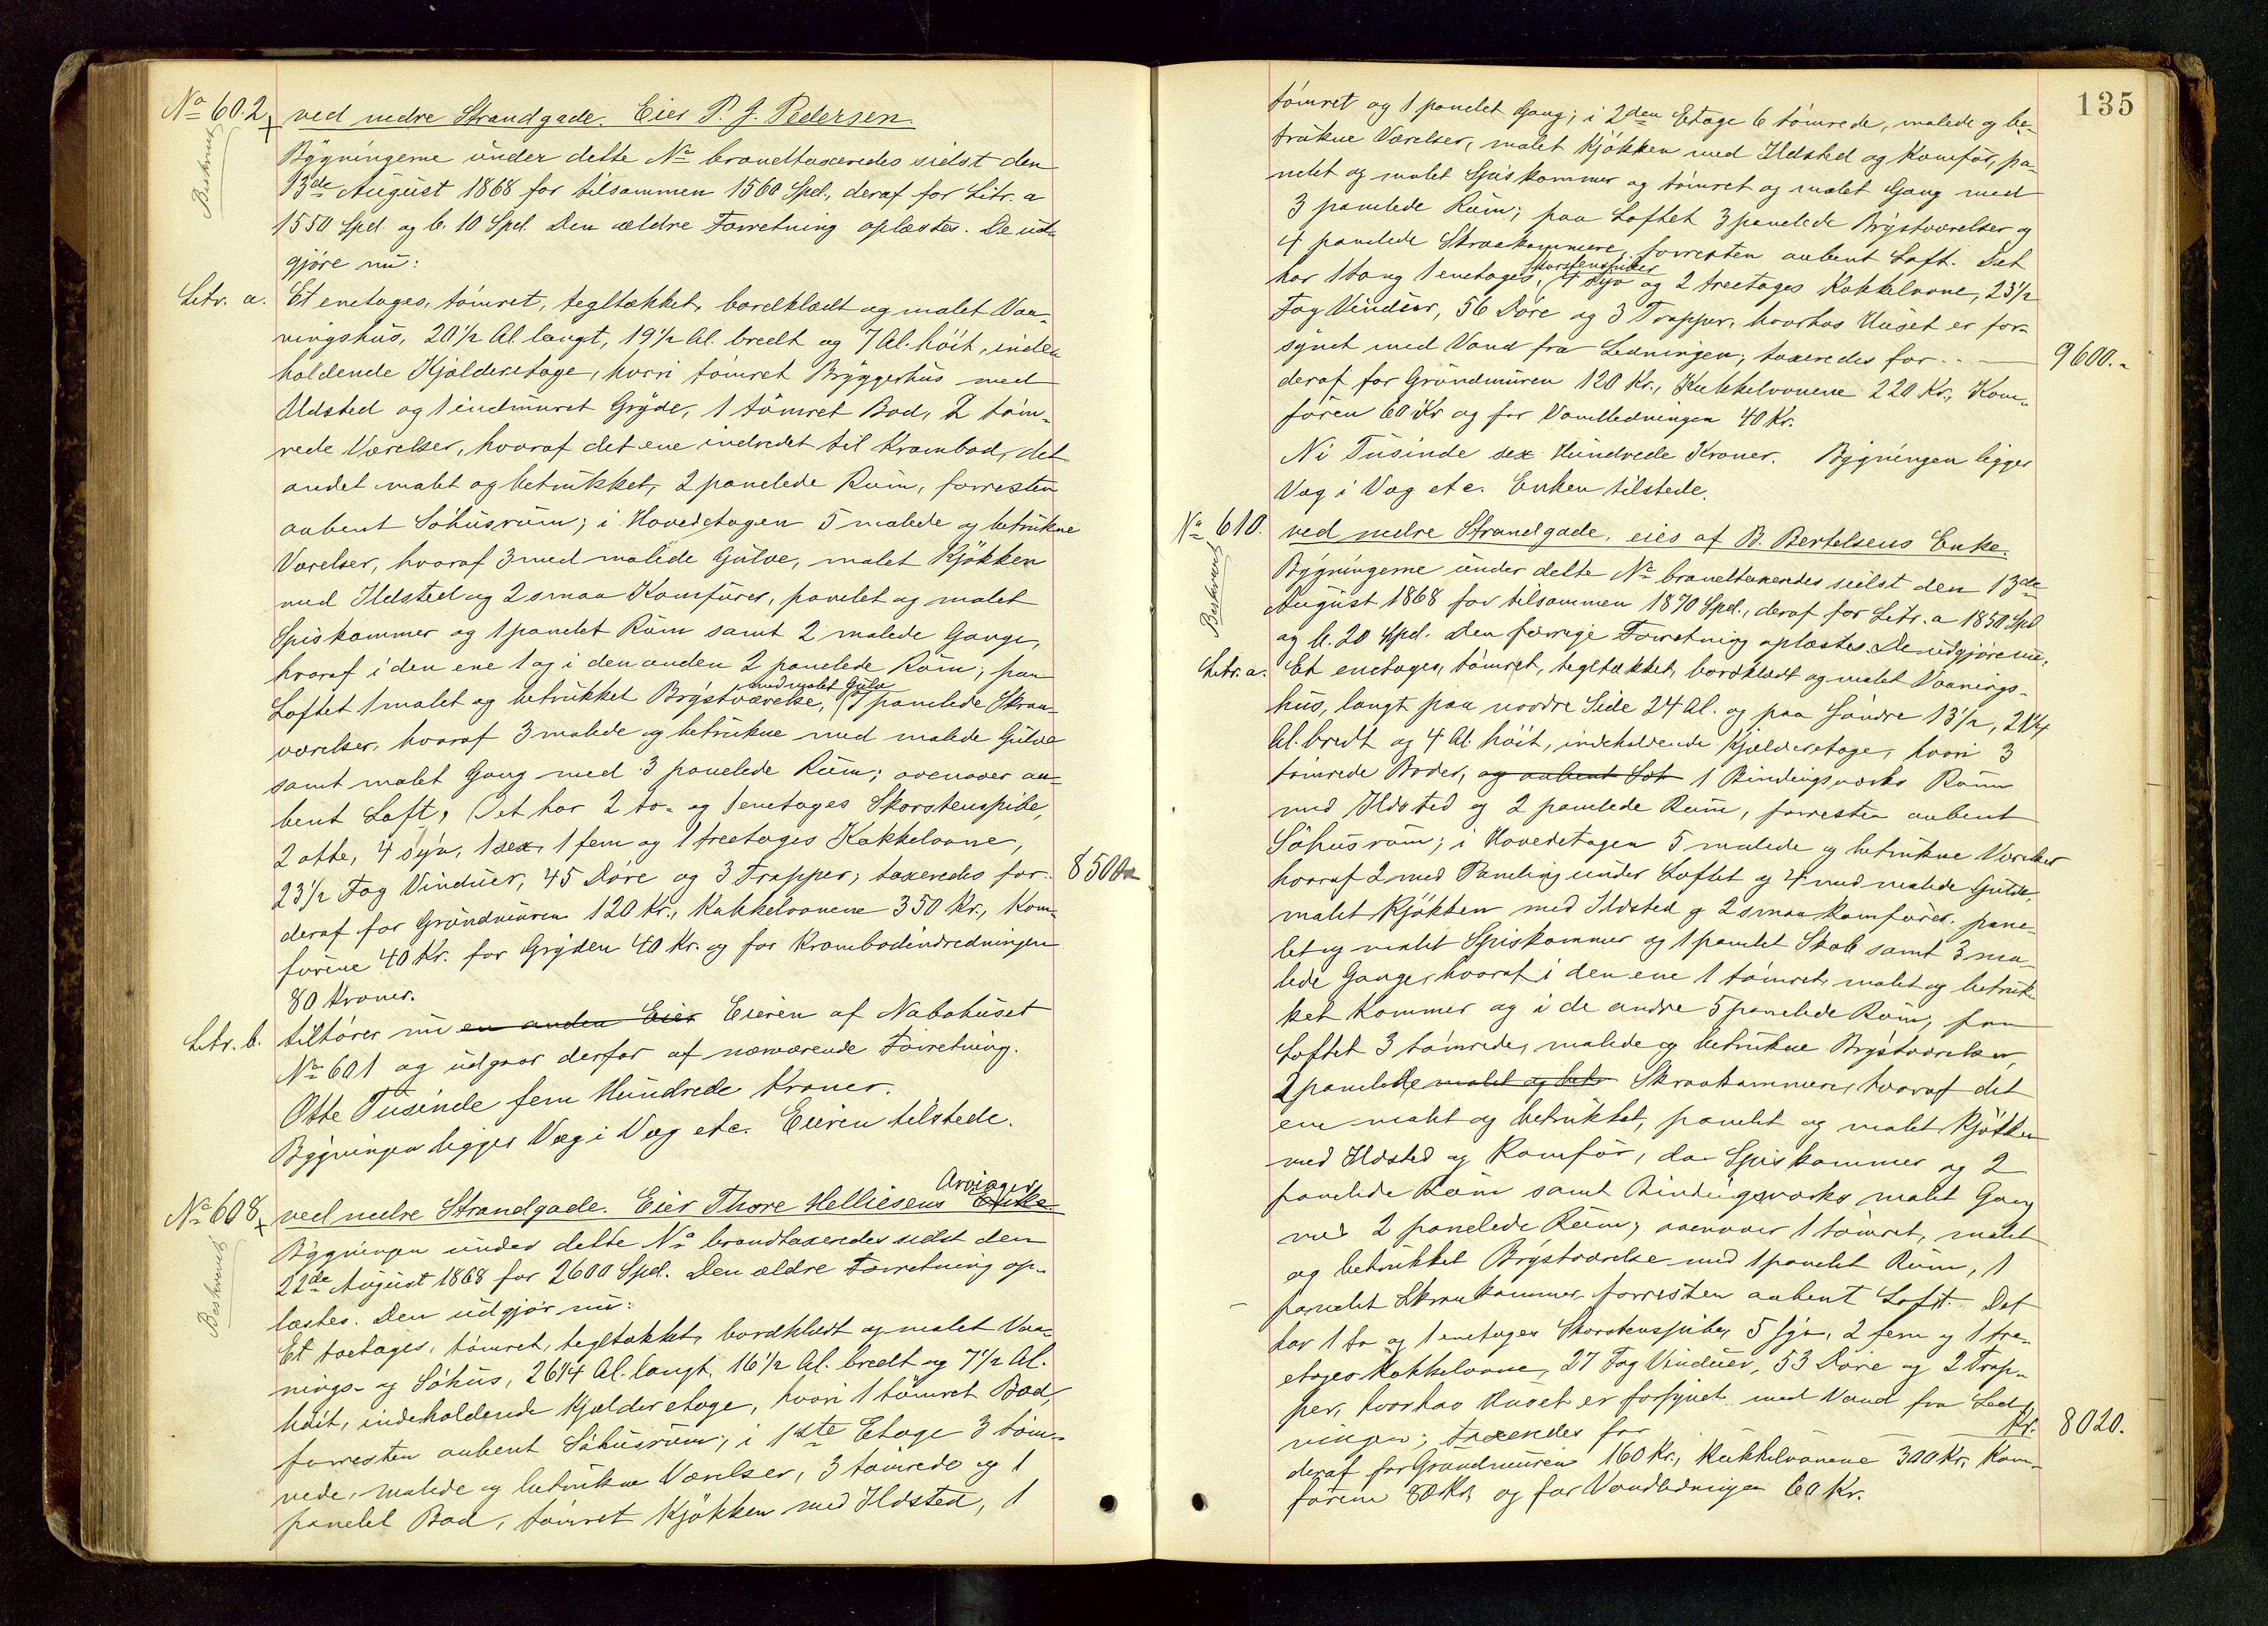 No 602 ved nedre Strandgade. Eier P. J. Pedersen.
Beskrevet
Bygningerne under dette No brandtaxeredes sidst den
13de August 1868 for tilsammen 1560 Spd., deraf for Litr. a
1550 Spd. og b. 10 Spd. Den ældre Forretning oplæstes. De ud-
gjøre nu:
Litr. a. Et enetages, tømret, tegltækket, bordklædt og malet Vaa-
ningshus, 20 1/2 Al. langt, 19 1/2 Al. bredt og 7 Al. höit, inde-
holdende Kjælderetage, hvori tømret Bryggerhus med
Ildsted og 1 indmuret Gryde, 1 tømret Bod, 2 tøm-
rede Værelser, hvoraf det ene indredet til Krambod, det
andet malet og betrukket, 2 panelede Rum, forresten
aabent Söhusrum; i Hovedetagen 5 malede og betrukne
Værelser, hvoraf 3 med malede Gulve, malet Kjøkken
med Ildsted og 2 smaa Komfurer, panelet og malet
Spiskammer og 1 panelet Rum samt 2 malede Gange,
hvoraf i den ene 1 og i den anden 2 panelede Rum; paa
med malet Gulv
Loftet 1 malet og betrukket Brystværelse, 7 panelede Skraa-
værelser, hvoraf 3 malede og betrukne med malede Gulve
samt malet Gang med 3 panelede Rum; ovenover aa-
bent Loft. Det har 2 to- og 1 enetages Skorstenspibe,
2 otte, 4 syv, 1 sex, 1 fem og 1 treetages Kakkelovne,
23 1/2 Fag Vinduer, 45 Døre og 3 Trapper; taxeredes for 8500
deraf for Grundmuren 120 Kr., Kakkelovnene 350 Kr., Kom-
furene 40 Kr. for Gryden 40 Kr. og for Krambodindredningen
80 Kroner.
Litr. b. tilhører nu en anden Eier Eieren af Nabohuset
No 601 og udgaar derfor af nærværende Forretning.
Otte Tusinde fem Hundrede Kroner.
Bygningen ligger Væg i Væg etc. Eieren tilstede.
Arvinger
No 608 ved nedre Strandgade. Eier Thore Helliesens Enke
Beskrevet
Bygningen under dette No brandtaxeredes sidst den
22de August 1868 for 2600 Spd. Den ældre Forretning op-
læstes. Den udgjør nu:
Et toetages, tømret, tegltækket, bordklædt og malet Vaa-
nings- og Söhus, 26 1/4 Al. langt, 16 1/2 Al. bredt og 7 1/2 Al.
höit, indeholdende Kjælderetage, hvori 1 tømret Bod,
forresten aabent Söhusrum; i 1ste Etage 3 tøm-
rede, malede og betrukne Værelser, 3 tømrede og 1
panelet Bod, tømret Kjøkken med Ildsted, 1
135
tømret og 1 panelet Gang; i 2den Etage 6 tømrede, malede og be-
trukne Værelser, malet Kjøkken med Ildsted og Komfur, pa-
nelet og malet Spiskammer og tømret og malet Gang med
3 panelede Rum; paa Loftet 3 panelede Brystværelser og
4 panelede Skraakammere, forresten aabent Loft. Det
Skorstenspiber
har 1 to og 1 enetages, 4 syv og 2 treetages Kakkelovne, 23 1/2
Fag Vinduer, 56 Døre og 3 Trapper, hvorhos Huset er for-
synet med Vand fra Ledningen; taxeredes for 9600.-
deraf for Grundmuren 120 Kr., Kakkelovnene 220 Kr., Kom-
furen 60 Kr. og for Vandledningen 40 Kr.
Ni Tusinde sex Hundrede Kroner. Bygningen ligger
Væg i Væg etc. Enken tilstede.
No 610. ved nedre Strandgade, eies af B. Bertelsens Enke.
Beskrevet
Bygningerne under dette No brandtaxeredes sidst den 13de
August 1868 for tilsammen 1870 Spd., deraf for Litr. a 1850 Spd
og b. 20 Spd. Den forrige Forretning oplæstes. De udgjøre nu:
Litr. a. Et enetages, tømret, tegltækket, bordklædt og malet Vaanings-
hus, langt paa nordre Side 24 Al. og paa søndre 13 1/2, 21 1/4
Al. bredt og 4 Al. höit, indeholdende Kjælderetage, hvori 3
tømrede Boder, og aabent Loft 1 Bindingsværks Rum
med Ildsted og 2 panelede Rum, forresten aabent
Söhusrum; i Hovedetagen 5 malede og betrukne Værelser
hvoraf 2 med Paneling under Loftet og 4 med malede Gulve,
malet Kjøkken med Ildsted og 2 smaa Komfurer, pane-
let og malet Spiskammer og 1 panelet Skab samt 3 ma-
lede Gange, hvoraf i den ene 1 tømret, malet og betruk-
ket Kammer og i de andre 5 panelede Rum, paa
Loftet 3 tømrede, malede og betrukne Brystværelser,
2 panelede malet og betr Skraakammere, hvoraf det
ene malet og betrukket, panelet og malet Kjøkken
med Ildsted og Komfur, do Spiskammer og 2
panelede Rum samt Bindingsværks malet Gang
med 2 panelede Rum; ovenover 1 tømret, malet
og betrukket Brystværelse med 1 panelet Rum, 1
panelet Skraakammer, forresten aabent Loft. Det
har 1 to og 1 enetages Skorstenspibe, 5 syv, 2 fem og 1 tre-
etages Kakkelovne, 27 Fag Vinduer, 53 Døre og 2 Trap-
per, hvorhos Huset er forsynet med Vand fra Led-
ningen; taxeredes for Kr. 8020.
deraf for Grundmuren 160 Kr., Kakkelovnene 300 Kr., Kom-
furene 80 Kr. og for Vandledningen 60 Kr.